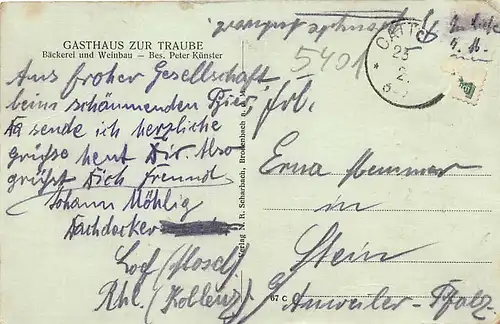 GASTHAUS ZUR TRAUBE
Bäckerei und Weinbau — Bes. Peter Künster
5401
Aus froher Gesellschaft
beim schäumenden Bier,
Da sende ich herzliche
Grüße heut Dir. Also
grüßt Dich Freund
Johann Möhlig
Dachdecker
Lof (Mosel)
Rhl. (Koblenz)
Verlag N. R. Scharbach, Brodenbach a. M.
67 C
Frl.
Erna Memmer
in
Stein
Anweiler-Pfalz